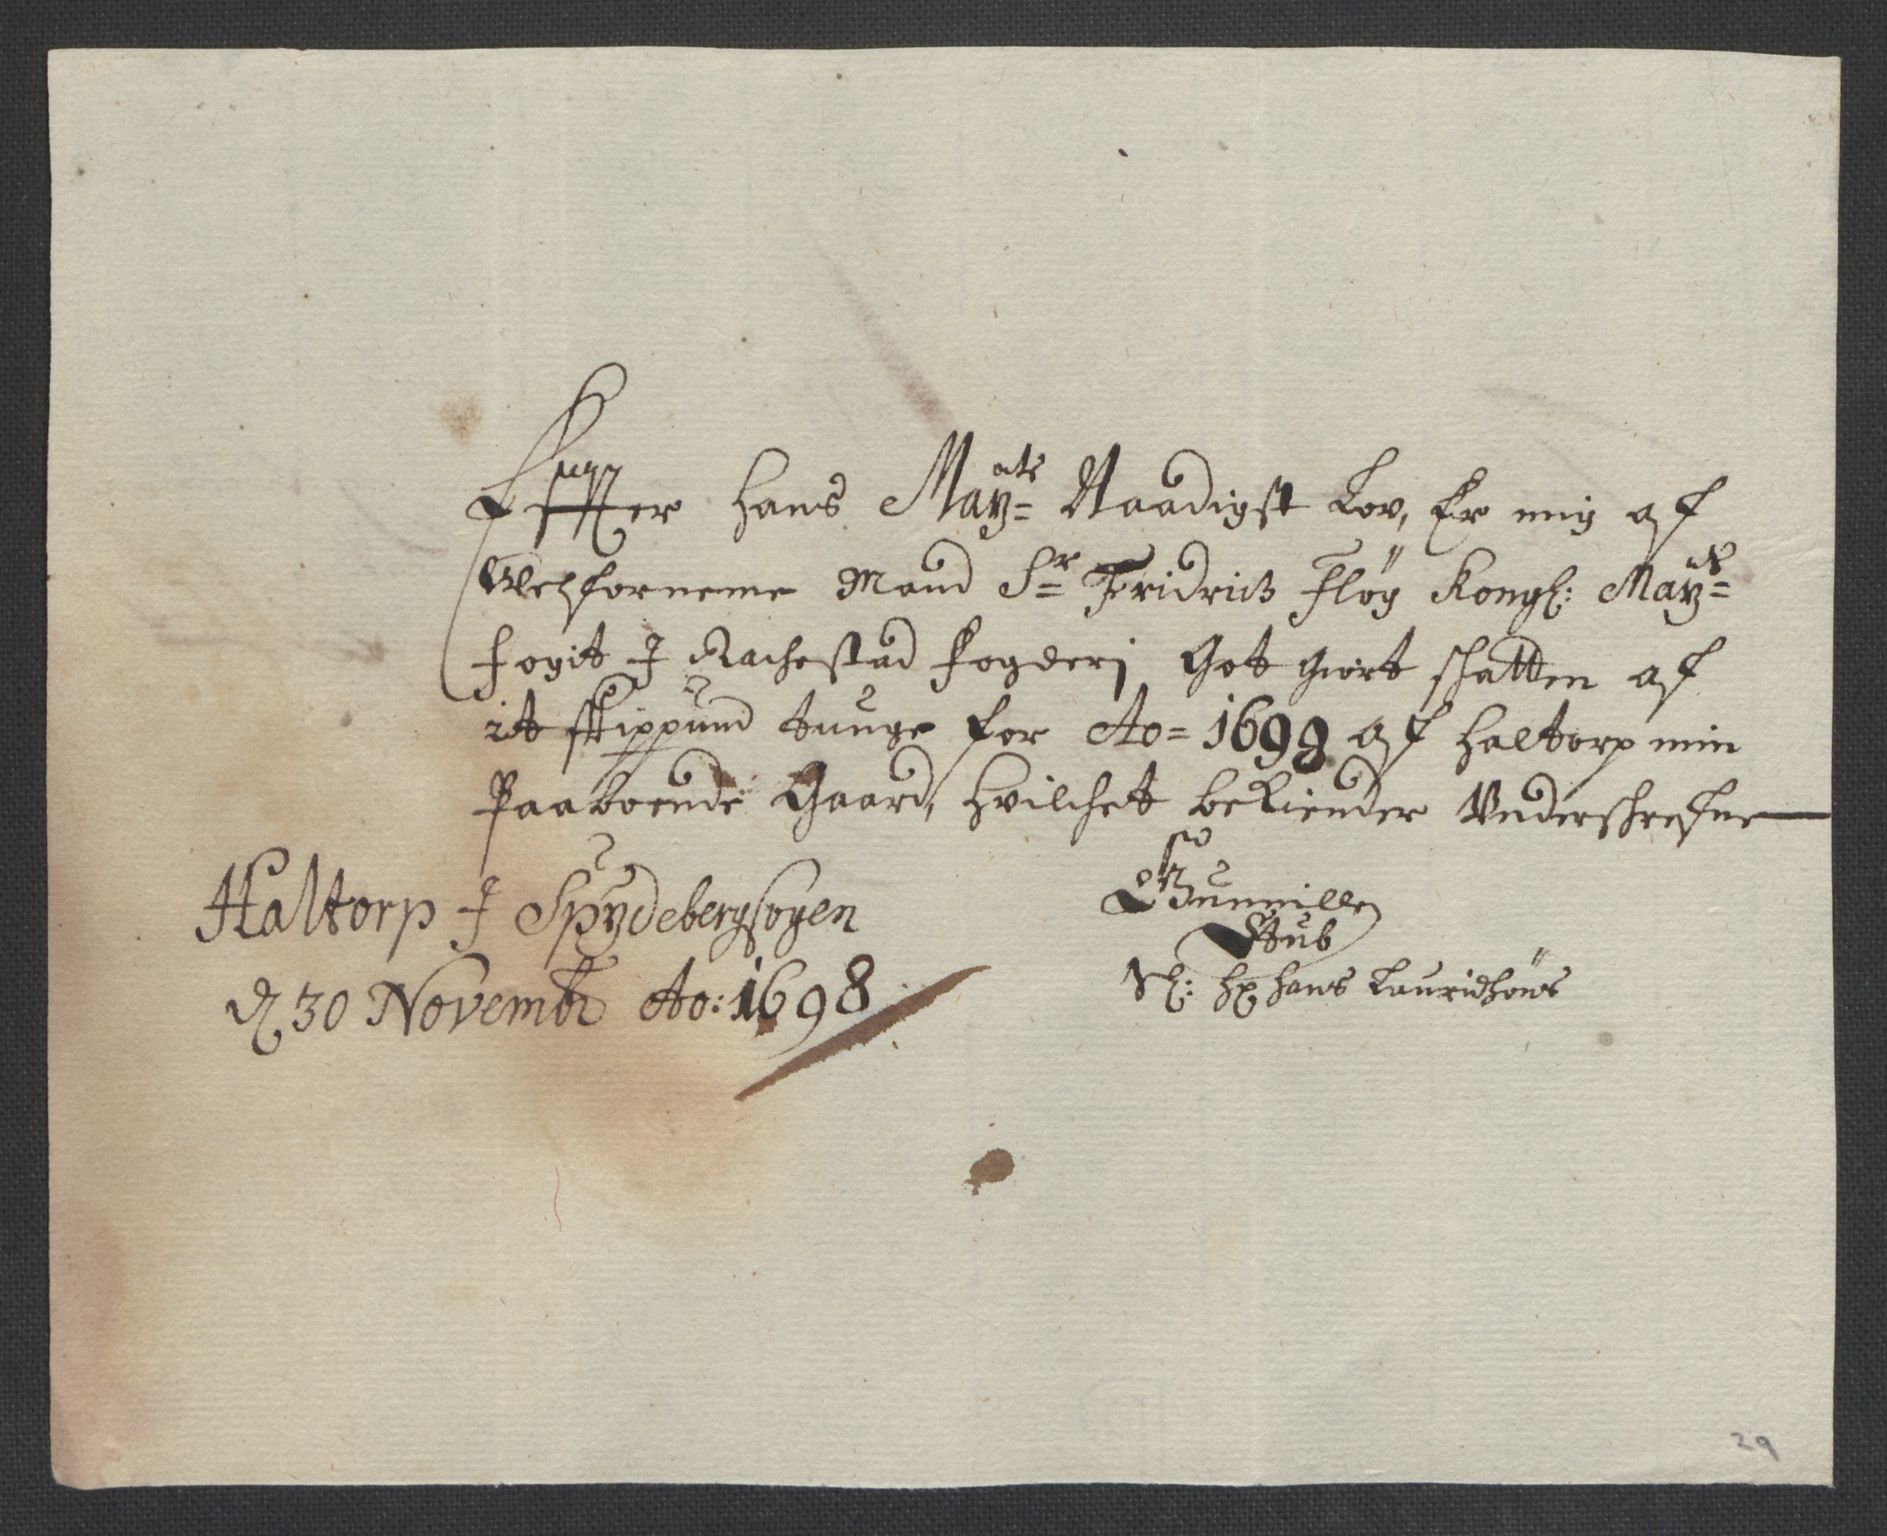 Effter Hans Maÿ:ats Naadigst Lov, Er mig af
Welfornemme Mand Sr Fridrich Fløg Kongl: Maÿ:ts
Fogit I Rachestad Fogderi Got Giort schatten af
it skippund tunge for Ao= 1698 af Haltorp min
Paaboende Gaard, Hvilchet bekiender Underschrefne
Haltorp I Spÿdebergsogen
d 30 Novembr Ao: 1698
Gunnille
Stub
Sl: Hr Hans Lauridsøns
29